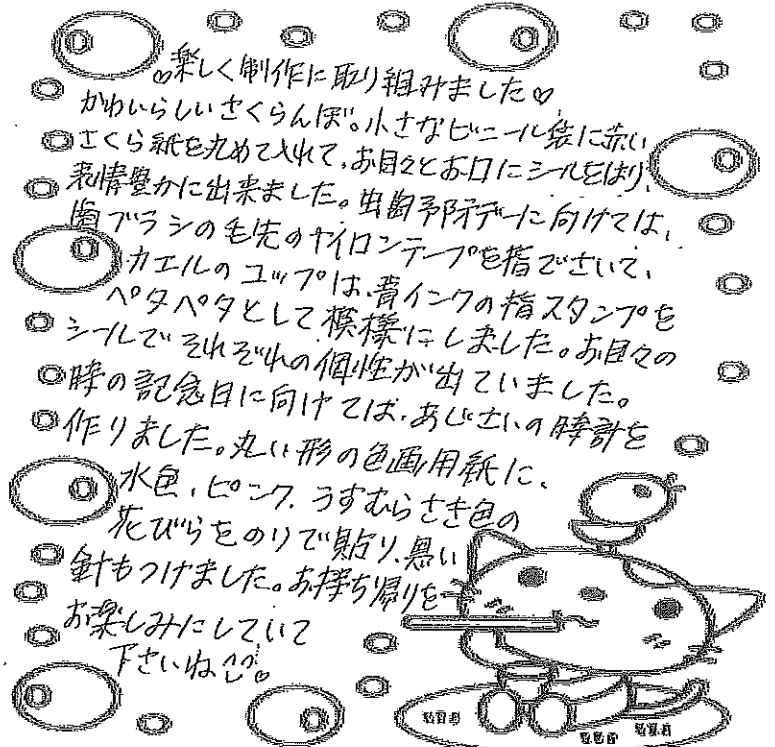 ♡楽しく制作に取り組みました♡
かわいらしいさくらんぼ。小さなビニール袋に赤い
さくら紙を丸めて入れて、お目々とお口にシールをはり、
表情豊かに出来ました。虫歯予防デーに向けては、
歯ブラシの毛先のナイロンテープを指でさいて、
カエルのコップは、青インクの指スタンプを
ペタペタとして模様にしました。お目々の
シールでそれぞれの個性が出ていました。
時の記念日に向けては、あじさいの時計を
作りました。丸い形の色画用紙に、
水色、ピンク、うすむらさき色の
花びらをのりで貼り、黒い
針もつけました。お持ち帰りを
お楽しみにしていて
下さいね